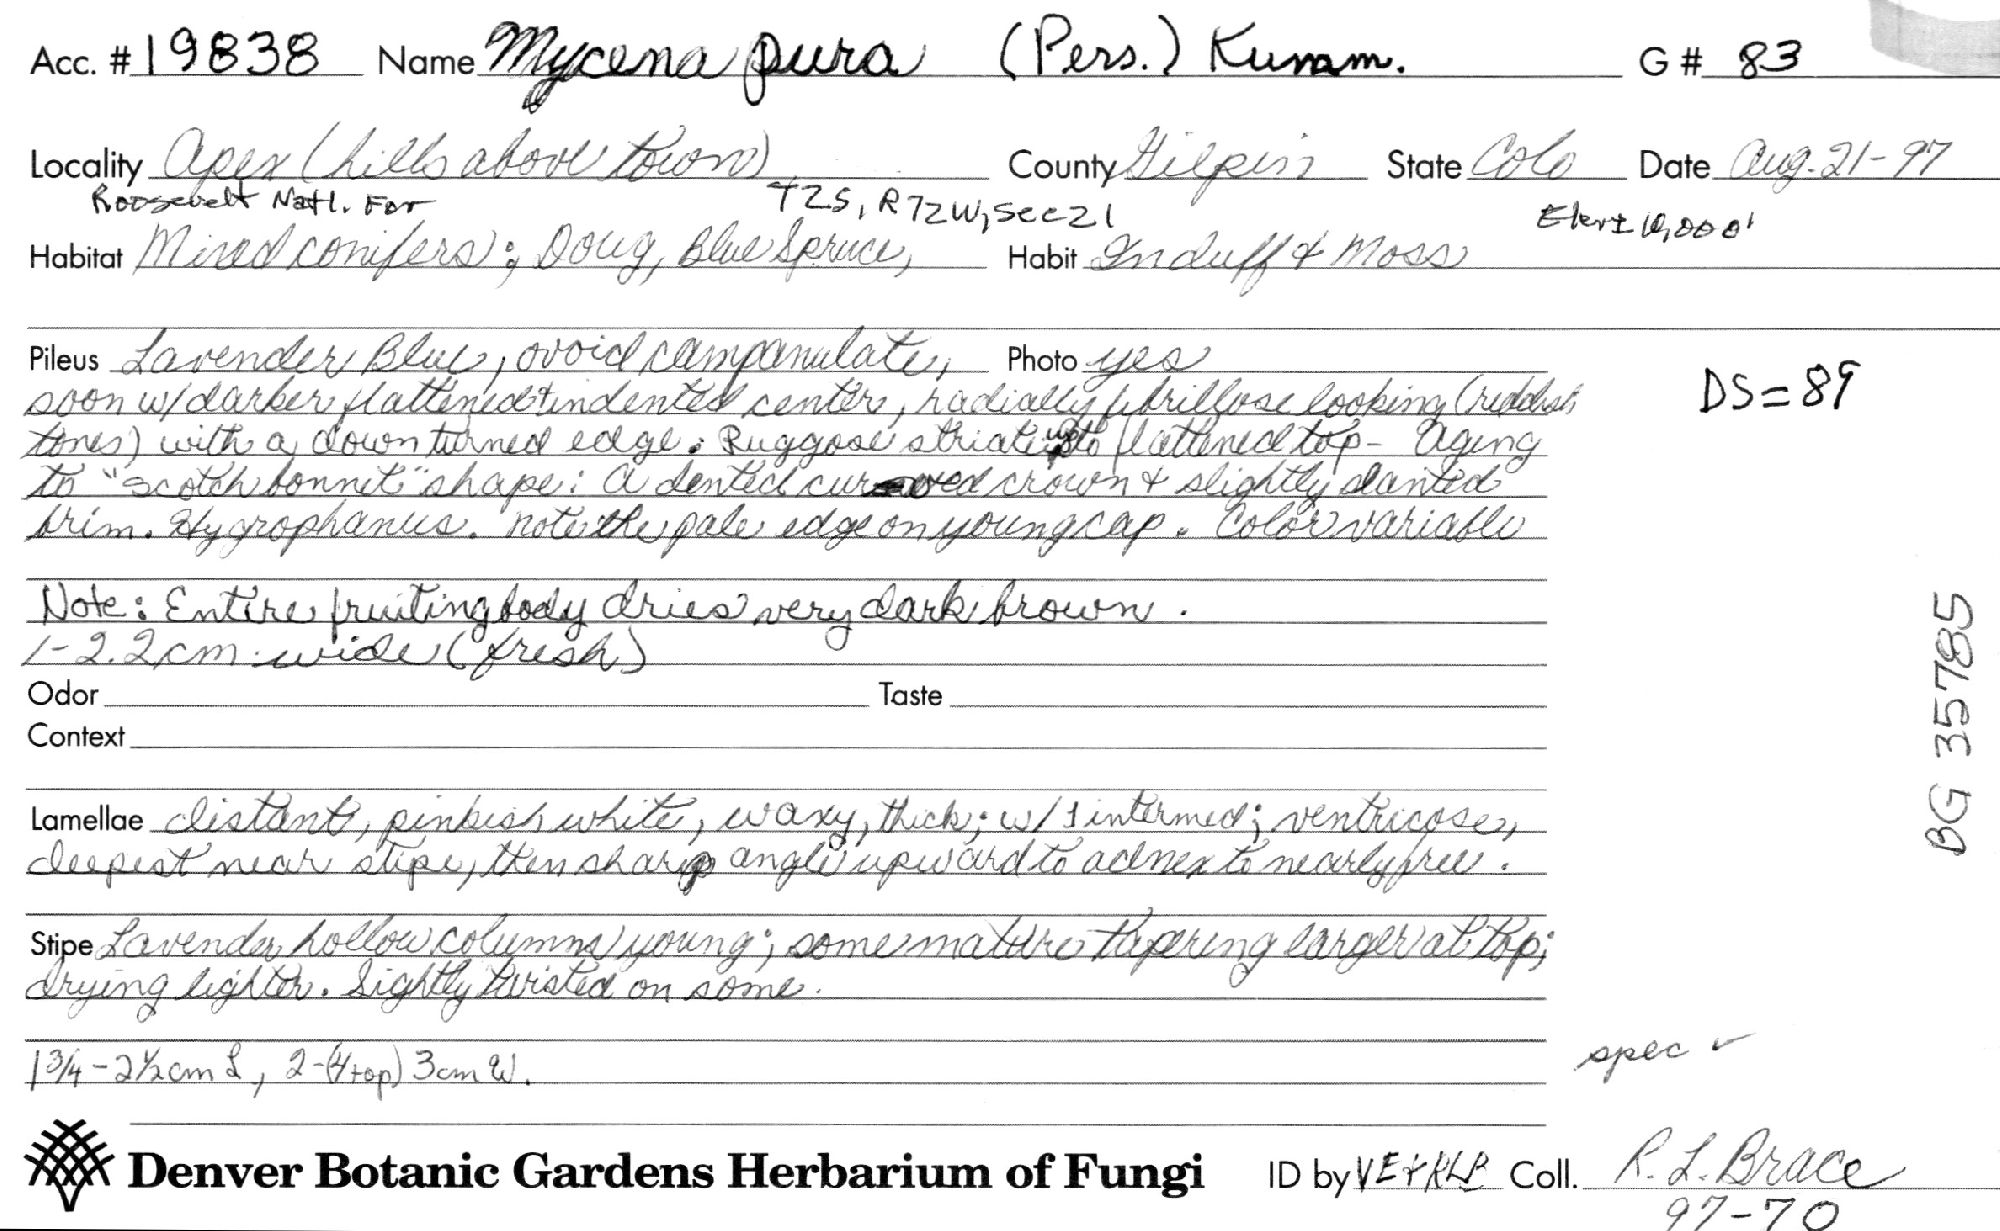 Acc. # 19838 Name Mycena pura (Pers.) Kumm. G # 83
Locality Apex (hills above town) County Gilpin State Colo Date Aug. 21-97
Roosevelt Natl. For T2S, R72W, Sec 21 Elev ± 10,000'
Habitat Mixed conifers; Doug, Blue Spruce, Habit In duff & Moss
Pileus Lavender Blue, ovoid campanulate, Photo yes
soon w/ darker flattened + indented center, radially fibrillose looking (reddish
tones) with a down turned edge. Ruggose striate up to flattened top - aging
to "scotch bonnet" shape: a dented curved crown & slightly slanted
brim. Hygrophanus. note the pale edge on young cap. Color variable
DS = 89
Note: Entire fruiting body dries very dark brown.
1-2.2 cm wide (fresh)
Odor Taste
Context
Lamellae distant, pinkish white, waxy, thick; w/ 1 intermed; ventricose,
deepest near stipe, then sharp angle upward to adnex to nearly free.
BG 35785
Stipe Lavender hollow columns young; some mature tapering larger at top;
drying lighter. Slightly twisted on some.
1 3/4 - 2 1/2 cm L, 2-(4 top) 3 cm W.
spec ✓
Denver Botanic Gardens Herbarium of Fungi ID by VE + RLB Coll. R. L. Brace
97-70